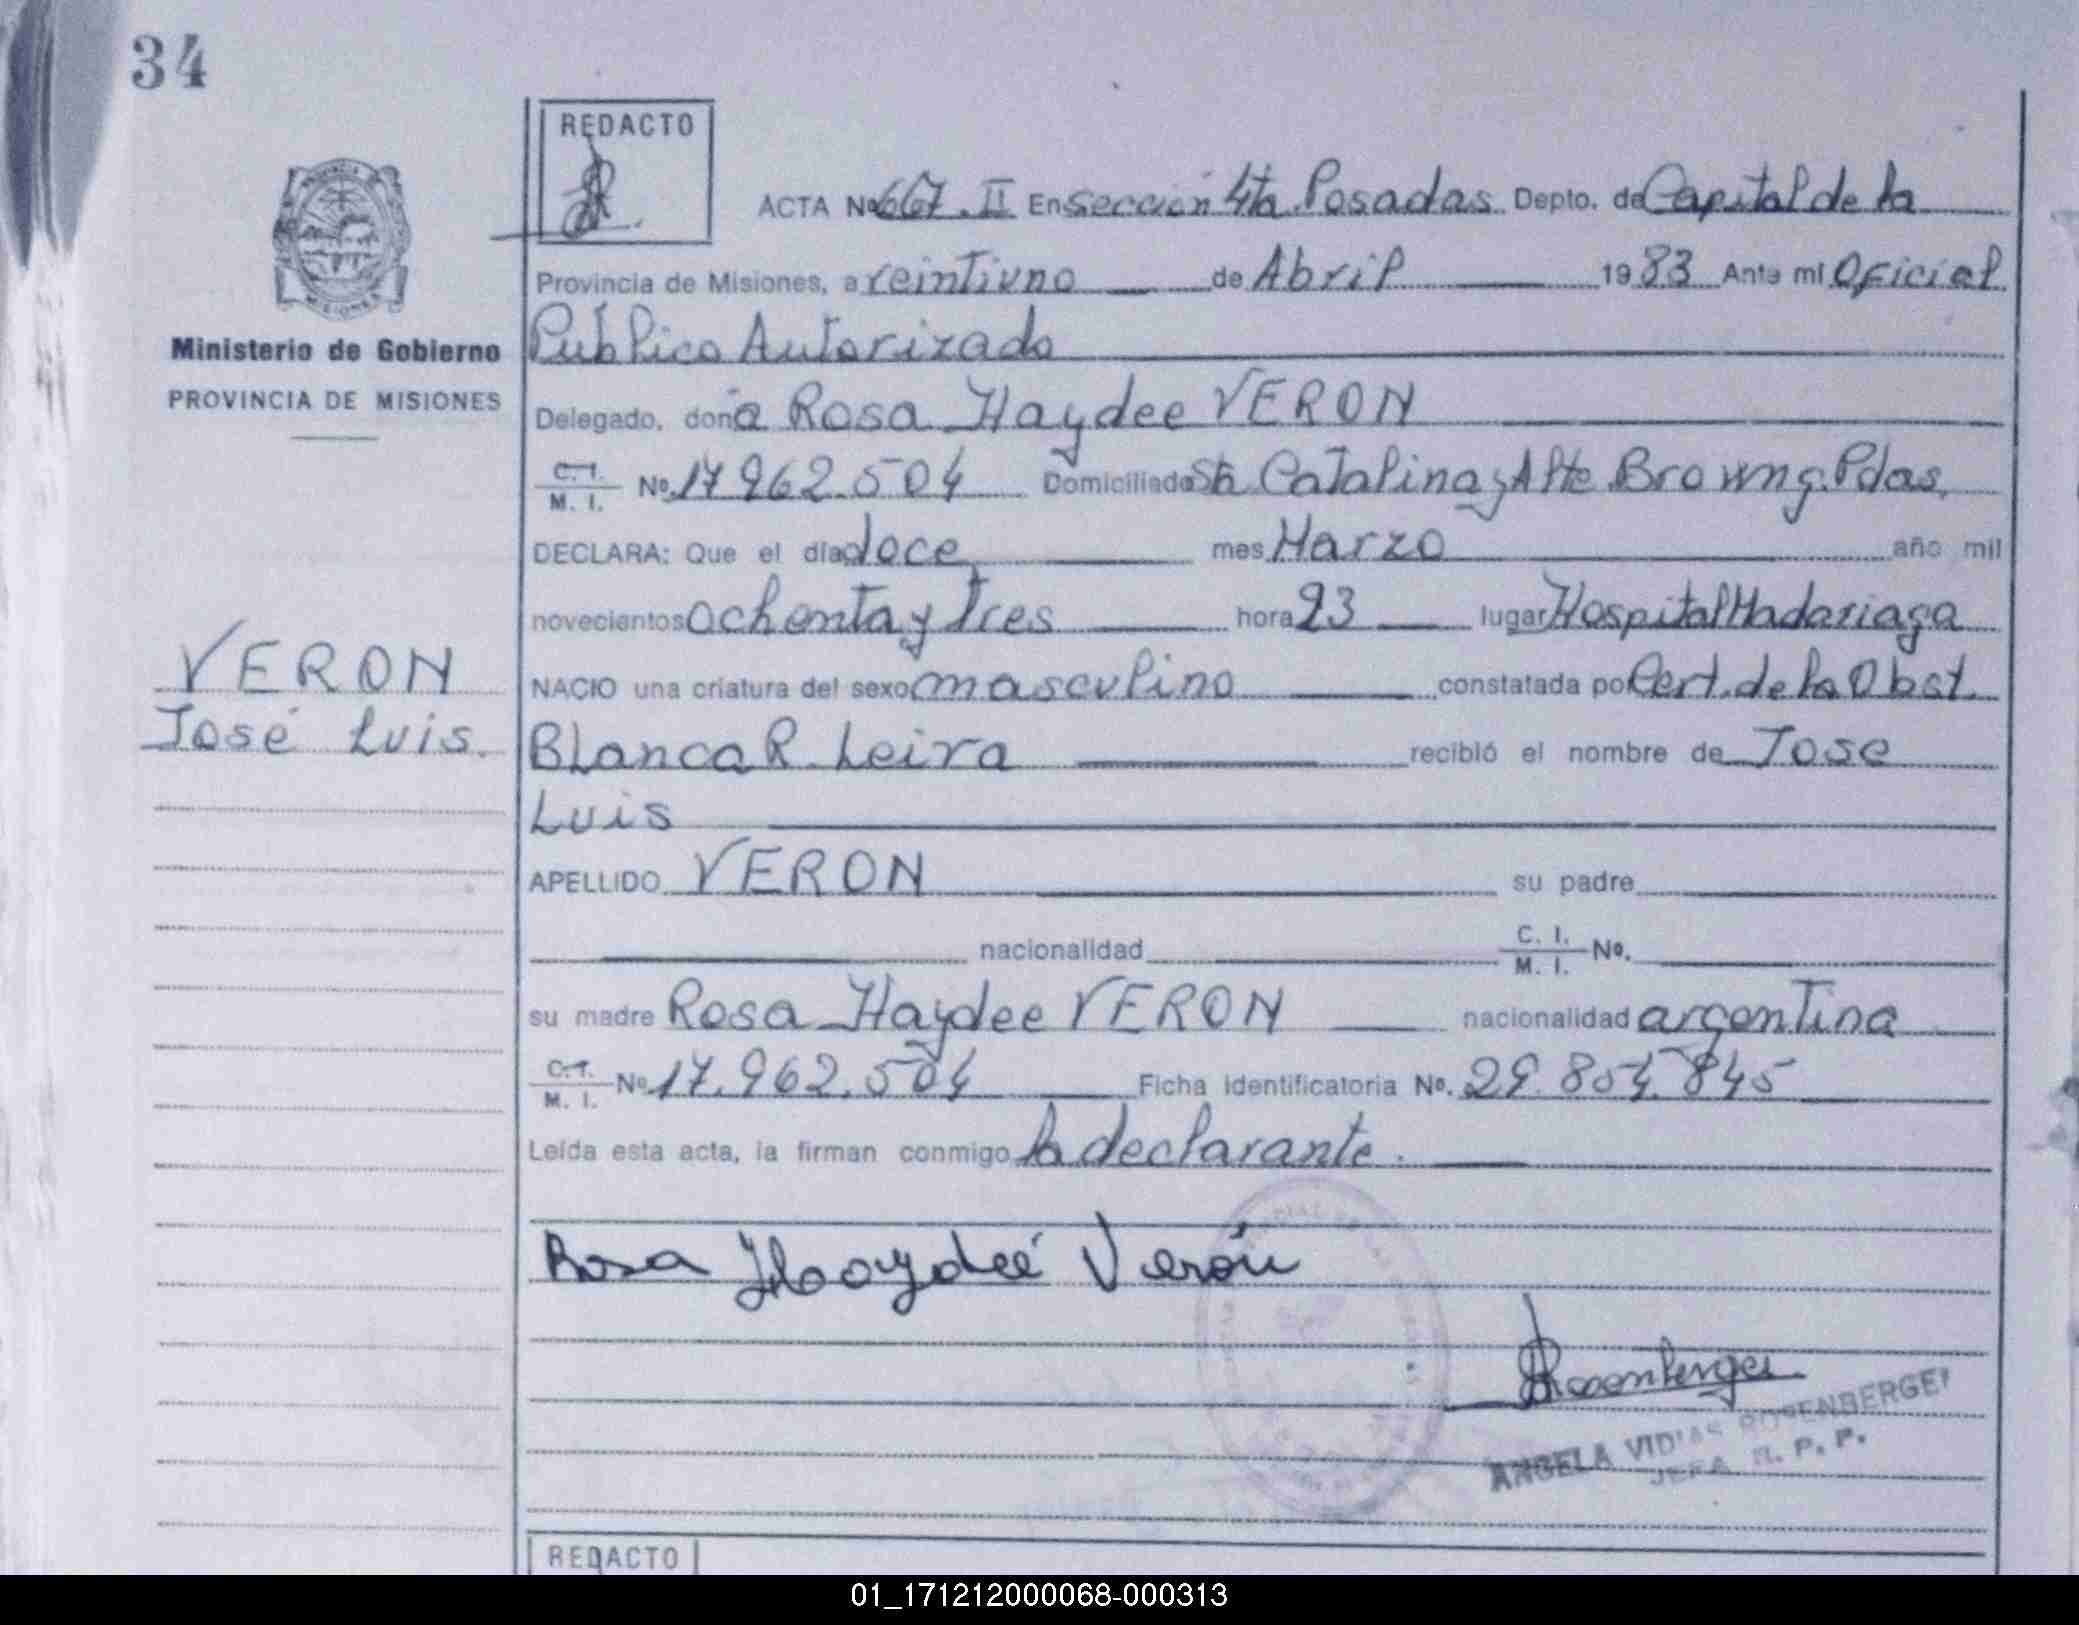 34
REDACTO
ACTA Nº 667. II En Sección 4ta Posadas Depto. de Capital de la
Provincia de Misiones, a veintiuno de Abril 1983 Ante mí Oficial
Público Autorizado
Ministerio de Gobierno
PROVINCIA DE MISIONES
Delegado, doña Rosa Haydee VERON
C.I. / M. I. Nº 17.962.504 Domiciliado Sta Catalina y Alte Brown g. Pdas.
DECLARA: Que el día doce mes Marzo año mil
novecientos ochenta y tres hora 23 lugar Hospital Madariaga
VERON
José Luis.
NACIO una criatura del sexo masculino constatada por Cert. de la Obst.
Blanca R. Leira recibió el nombre de Jose
Luis
APELLIDO VERON su padre
nacionalidad C. I. / M. I. Nº.
su madre Rosa Haydee VERON nacionalidad argentina
C.I. / M. I. Nº 17.962.504 Ficha identificatoria Nº. 29.804.845
Leída esta acta, la firman conmigo la declarante.
Rosa Haydeé Verón
Rosenberger
ANGELA VIDIAS ROSENBERGER
JEFA R. P. P.
REDACTO
01_171212000068-000313